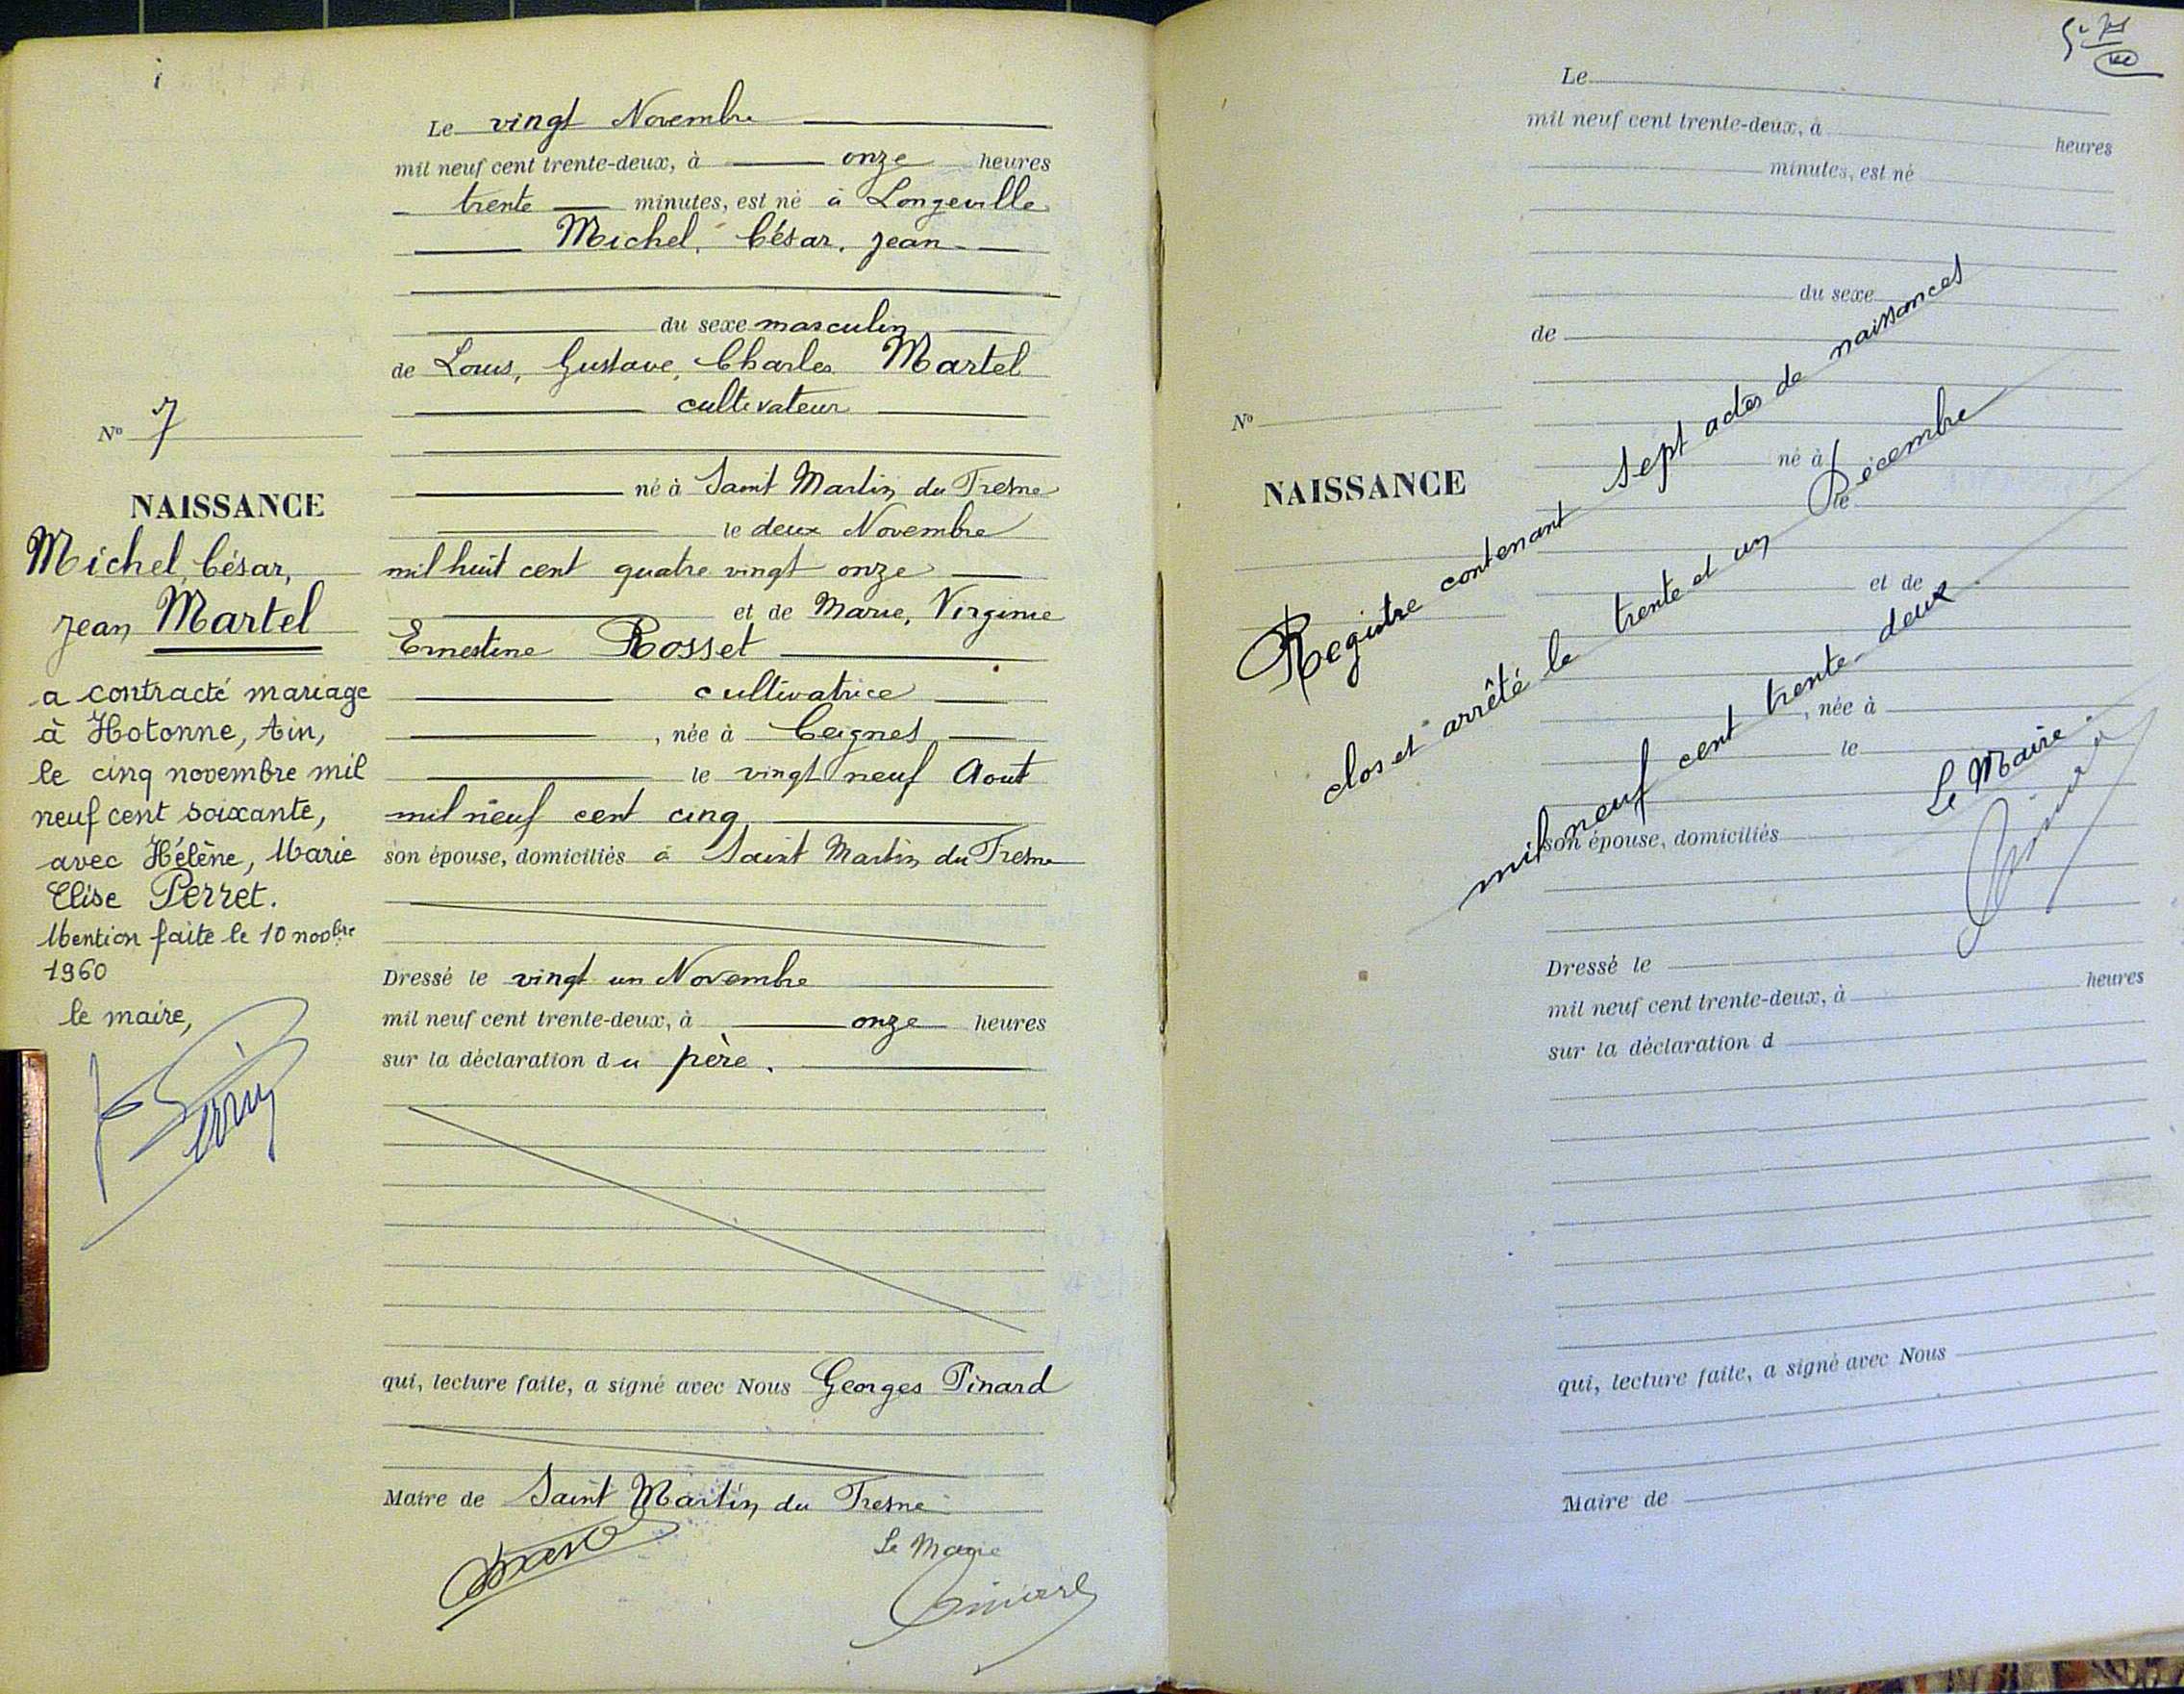 Le vingt Novembre
mil neuf cent trente-deux, à onze heures
trente minutes, est né à Longeville
Michel, César, Jean
du sexe masculin
de Louis, Gustave, Charles Martel
cultivateur
né à Saint Martin du Fresne
le deux Novembre
mil huit cent quatre vingt onze
et de Marie, Virginie
Ernestine Rosset
cultivatrice
, née à Ceignes
le vingt neuf Aout
mil neuf cent cinq
son épouse, domiciliés à Saint Martin du Fresne
Dressé le vingt un Novembre
mil neuf cent trente-deux, à onze heures
sur la déclaration du père.
qui, lecture faite, a signé avec Nous Georges Pinard
Maire de Saint Martin du Fresne
Le Maire
Pinard
N° 7
NAISSANCE
Michel, César,
Jean Martel
a contracté mariage
à Hotonne, Ain,
le cinq novembre mil
neuf cent soixante,
avec Hélène, Marie
Elise Perret.
Mention faite le 10 novbre
1960
le maire,
Le
mil neuf cent trente-deux, à heures
minutes, est né
du sexe
de
né à
le
et de
, née à
le
son épouse, domiciliés
Dressé le
mil neuf cent trente-deux, à heures
sur la déclaration d
qui, lecture faite, a signé avec Nous
Maire de
N°
NAISSANCE
Registre contenant sept actes de naissances
clos et arrêté le trente et un Décembre
mil neuf cent trente-deux.
Le Maire.
Pinard